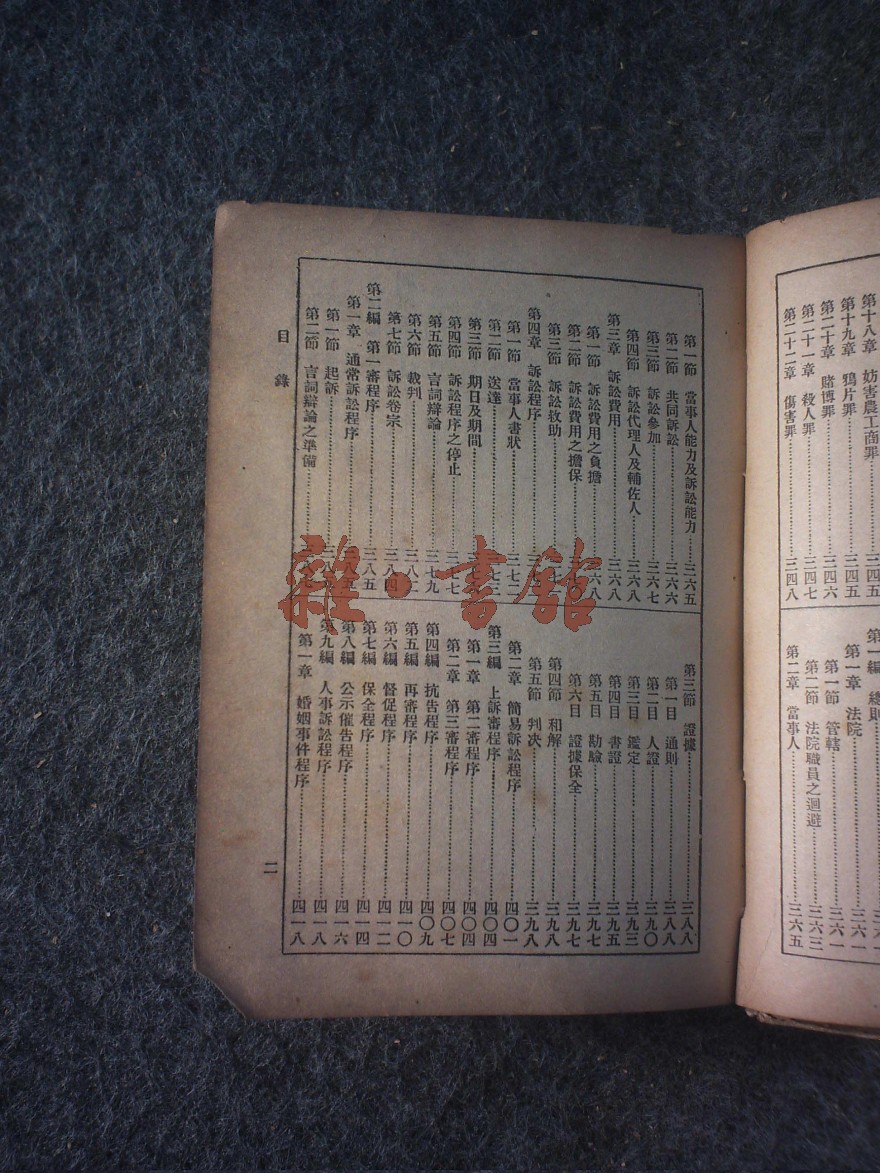 第十八章 妨害農工商罪……三四五
第十九章 鴉片罪……三四五
第二十章 賭博罪……三四六
第二十一章 殺人罪……三四七
第二十二章 傷害罪……三四八
第一編 總則
第一章 法院……三六一
第一節 管轄……三六一
第二節 法院職員之迴避……三六三
第二章 當事人……三六五
第一節 當事人能力及訴訟能力……三六五
第二節 共同訴訟……三六六
第三節 訴訟參加……三六七
第四節 訴訟代理人及輔佐人……三六八
第三章 訴訟費用……三六八
第一節 訴訟費用之負擔……六八
第二節 訴訟費用之擔保……
第三節 訴訟救助……
第四章 訴訟程序……
第一節 當事人書狀……三七二
第二節 送達……七三
第三節 期日及期間……
第四節 訴訟程序之停止……三七七
第五節 言詞辯論……三七九
第六節 裁判……三八二
第七節 訴訟卷宗……三八四
第二編 第一審程序……三八五
第一章 通常訴訟程序……
第一節 起訴……
第二節 言詞辯論之準備……
第三節 證據……三八八
第一目 通則……三八八
第二目 人證……三九〇
第三目 鑑定……三九三
第四目 書證……三九五
第五目 勘驗……三九七
第六目 證據保全……三九七
第四節 和解……三九八
第五節 判決……三九八
第二章 簡易訴訟程序……四〇一
第三編 上訴審程序……四〇四
第一章 第二審程序……四〇四
第二章 第三審程序……四〇七
第四編 抗告程序……四〇九
第五編 再審程序……四一〇
第六編 督促程序……四一二
第七編 保全程序……四一四
第八編 公示催告程序……四一六
第九編 人事訴訟程序……四一八
第一章 婚姻事件程序……四一八
目錄
二
雜·書館